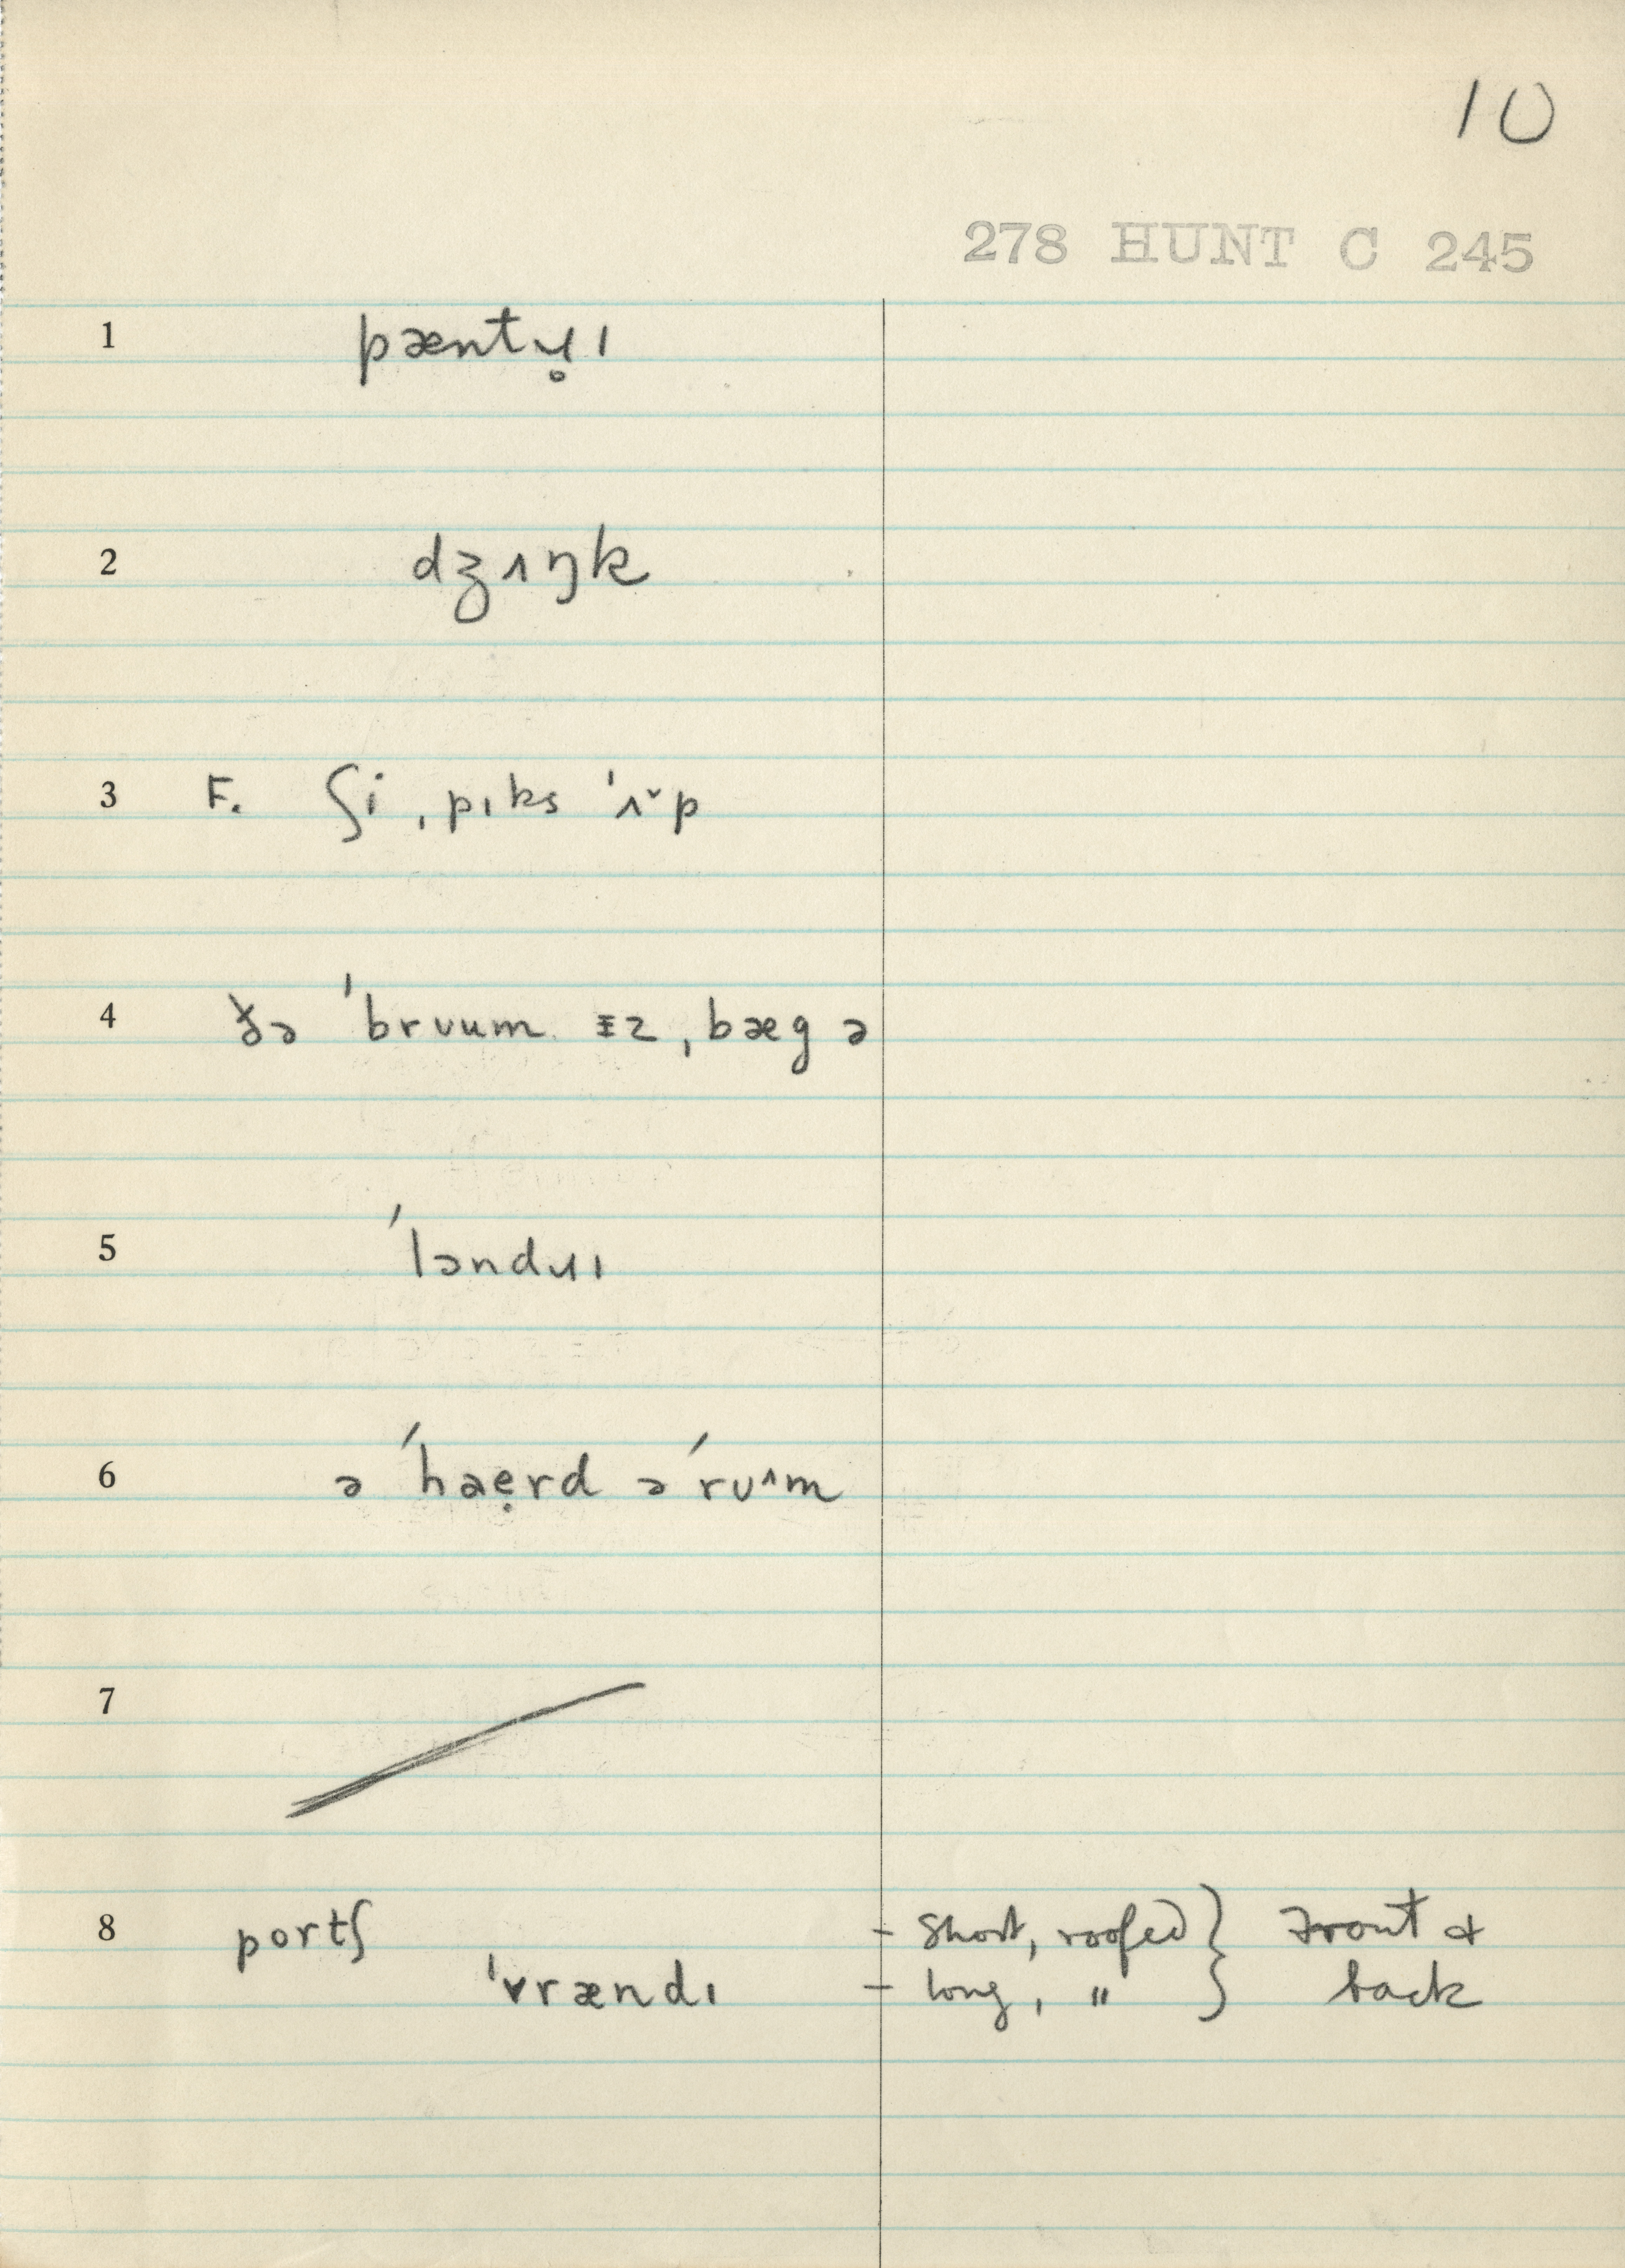 10
278 HUNT C 245
1 pæntɹ̥ɪ
2 dʒʌŋk
3 F. ʃi ˌpɪks ˈʌ˅p
4 ðə ˈbrʊum ɪz ˌbæg ə
5 ˈləndɹɪ
6 ə ˈhaẹrd ə ˈrʊ^m
7
8 portʃ - short, roofed } Front &
ˈvrændɪ - long, " } back